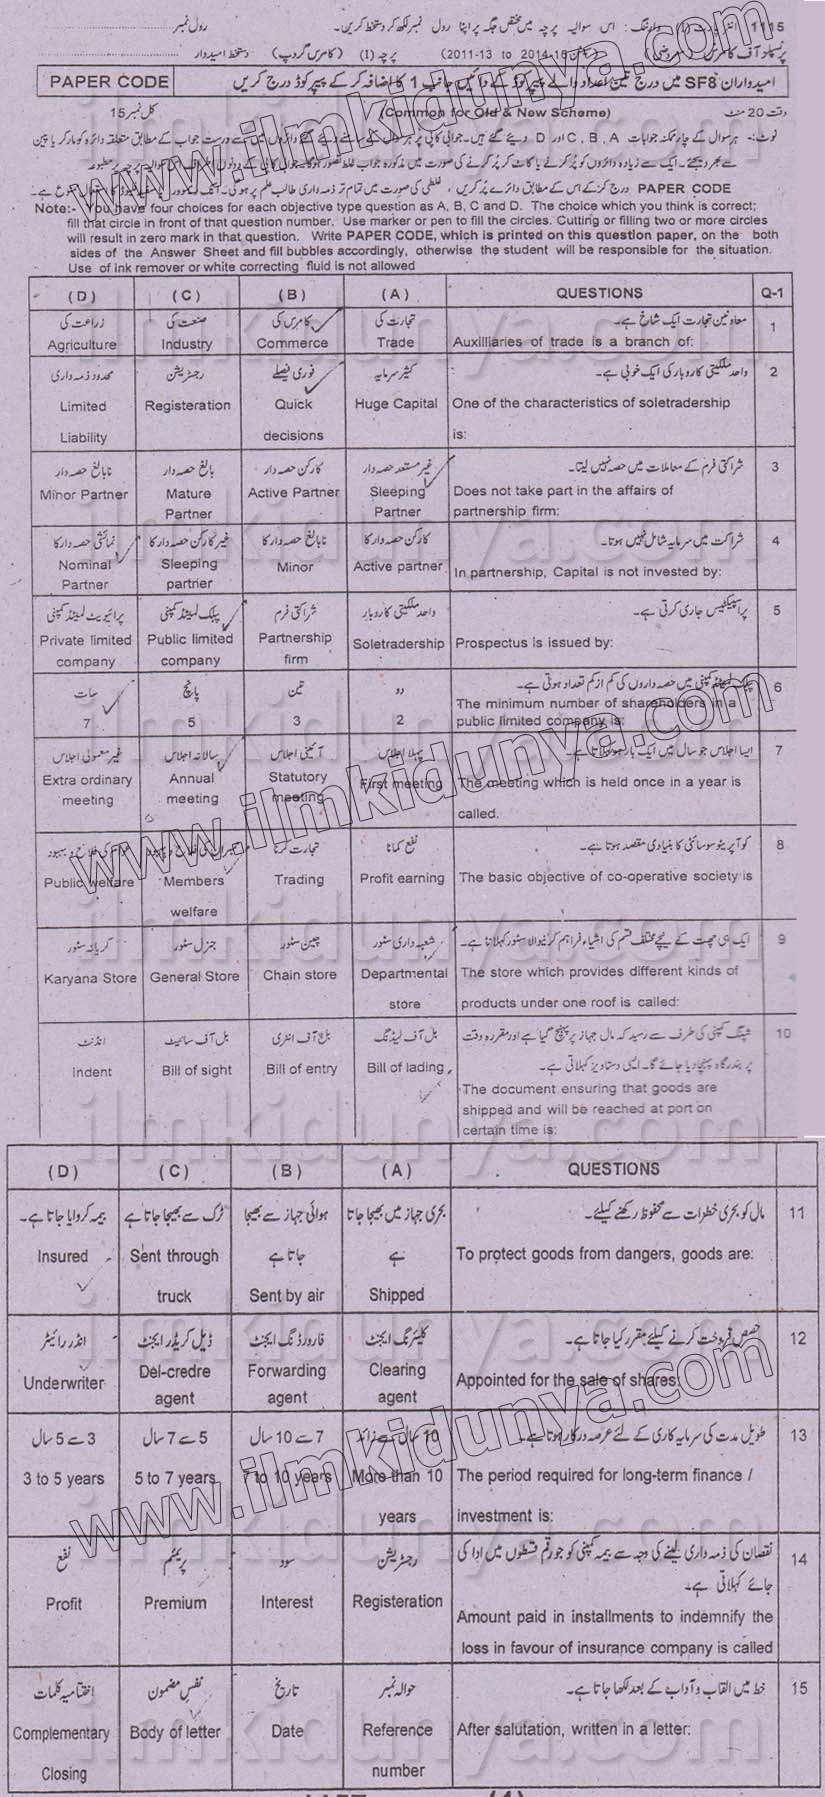 1115 انٹر پارٹ (I) وارننگ: اس سوالیہ پرچہ میں مختص جگہ پر اپنا رول نمبر لکھ کر دستخط کریں۔ رول نمبر
پرنسپلز آف کامرس معروضی (2011-13 to 2014-16) پرچہ (I) (کامرس گروپ) دستخط امیدوار
امیدواران SF8 میں درج تین اعداد والے پیپر کوڈ کے دائیں جانب 1 کا اضافہ کر کے پیپر کوڈ درج کریں PAPER CODE
وقت 20 منٹ (Common for Old & New Scheme) کل نمبر 15
نوٹ:- ہر سوال کے چار ممکنہ جوابات C, B, A اور D دیئے گئے ہیں۔ جوابی کاپی پر ہر سوال کے سامنے دیئے گئے دائروں میں سے درست جواب کے مطابق متعلقہ دائرہ کو مارکر یا پین
سے بھر دیجئے۔ ایک سے زیادہ دائروں کو پُر کرنے یا کاٹ کر پُر کرنے کی صورت میں مذکورہ جواب غلط تصور ہوگا۔
PAPER CODE درج کر کے اس کے مطابق دائرے پُر کریں، غلطی کی صورت میں تمام تر ذمہ داری طالب علم پر ہوگی۔
Note:- You have four choices for each objective type question as A, B, C and D. The choice which you think is correct;
fill that circle in front of that question number. Use marker or pen to fill the circles. Cutting or filling two or more circles
will result in zero mark in that question. Write PAPER CODE, which is printed on this question paper, on the both
sides of the Answer Sheet and fill bubbles accordingly, otherwise the student will be responsible for the situation.
Use of ink remover or white correcting fluid is not allowed
(D) (C) (B) (A) QUESTIONS Q-1
زراعت کی صنعت کی کامرس کی تجارت کی معاونین تجارت ایک شاخ ہے۔ 1
Agriculture Industry Commerce Trade Auxilliaries of trade is a branch of:
محدود ذمہ داری رجسٹریشن فوری فیصلے کثیر سرمایہ واحد ملکیتی کاروبار کی ایک خوبی ہے۔ 2
Limited Registeration Quick Huge Capital One of the characteristics of soletradership
Liability decisions is:
نابالغ حصہ دار بالغ حصہ دار کارکن حصہ دار غیر مستعد حصہ دار شراکتی فرم کے معاملات میں حصہ نہیں لیتا۔ 3
Minor Partner Mature Active Partner Sleeping Does not take part in the affairs of
Partner Partner partnership firm:
نمائشی حصہ دار کا غیر کارکن حصہ دار کا نابالغ حصہ دار کا کارکن حصہ دار کا شراکت میں سرمایہ شامل نہیں ہوتا۔ 4
Nominal Sleeping Minor Active partner In partnership, Capital is not invested by:
Partner partner
پرائیویٹ لمیٹڈ کمپنی پبلک لمیٹڈ کمپنی شراکتی فرم واحد ملکیتی کاروبار پراسپیکٹس جاری کرتی ہے۔ 5
Private limited Public limited Partnership Soletradership Prospectus is issued by:
company company firm
سات پانچ تین دو پبلک لمیٹڈ کمپنی میں حصہ داروں کی کم از کم تعداد ہوتی ہے۔ 6
The minimum number of shareholders in a
7 5 3 2 public limited company is:
غیر معمولی اجلاس سالانہ اجلاس آئینی اجلاس پہلا اجلاس ایسا اجلاس جو سال میں ایک بار ہو کہلاتا ہے۔ 7
Extra ordinary Annual Statutory First meeting The meeting which is held once in a year is
meeting meeting meeting called.
عوام کی فلاح و بہبود ممبران کی فلاح و بہبود تجارت کرنا نفع کمانا کوآپریٹو سوسائٹی کا بنیادی مقصد ہوتا ہے۔ 8
Public welfare Members Trading Profit earning The basic objective of co-operative society is
welfare
کریانہ سٹور جنرل سٹور چین سٹور شعبہ داری سٹور ایک ہی چھت کے نیچے مختلف قسم کی اشیاء فراہم کرنیوالا سٹور کہلاتا ہے۔ 9
Karyana Store General Store Chain store Departmental The store which provides different kinds of
store products under one roof is called:
انڈنٹ بل آف سائیٹ بل آف انٹری بل آف لیڈنگ شپنگ کمپنی کی طرف سے رسید کہ مال جہاز پر پہنچ گیا ہے اور مقررہ وقت 10
Indent Bill of sight Bill of entry Bill of lading پر بندرگاہ پہنچا دیا جائے گا۔ ایسی دستاویز کہلاتی ہے۔
The document ensuring that goods are
shipped and will be reached at port on
certain time is:
(D) (C) (B) (A) QUESTIONS
بیمہ کروایا جاتا ہے۔ ٹرک سے بھیجا جاتا ہے ہوائی جہاز سے بھیجا بحری جہاز میں بھیجا جاتا مال کو بحری خطرات سے محفوظ رکھنے کیلئے۔ 11
Insured Sent through جاتا ہے ہے To protect goods from dangers, goods are:
truck Sent by air Shipped
انڈر رائیٹر ڈیل کریڈر ایجنٹ فارورڈنگ ایجنٹ کلیئرنگ ایجنٹ حصص فروخت کرنے کیلئے مقرر کیا جاتا ہے۔ 12
Underwriter Del-credre Forwarding Clearing Appointed for the sale of shares:
agent agent agent
3 سے 5 سال 5 سے 7 سال 7 سے 10 سال 10 سال سے زائد طویل مدت کی سرمایہ کاری کے لئے عرصہ درکار ہوتا ہے۔ 13
3 to 5 years 5 to 7 years 7 to 10 years More than 10 The period required for long-term finance /
years investment is:
نفع پریمیم سود رجسٹریشن نقصان کی ذمہ داری لینے کی وجہ سے بیمہ کمپنی کو جو رقم قسطوں میں ادا کی 14
جائے کہلاتی ہے۔
Profit Premium Interest Registeration Amount paid in installments to indemnify the
loss in favour of insurance company is called
اختتامیہ کلمات نفسِ مضمون تاریخ حوالہ نمبر خط میں القاب و آداب کے بعد لکھا جاتا ہے۔ 15
Complementary Body of letter Date Reference After salutation, written in a letter:
Closing number
www.ilmkidunya.com
www.ilmkidunya.com
www.ilmkidunya.com